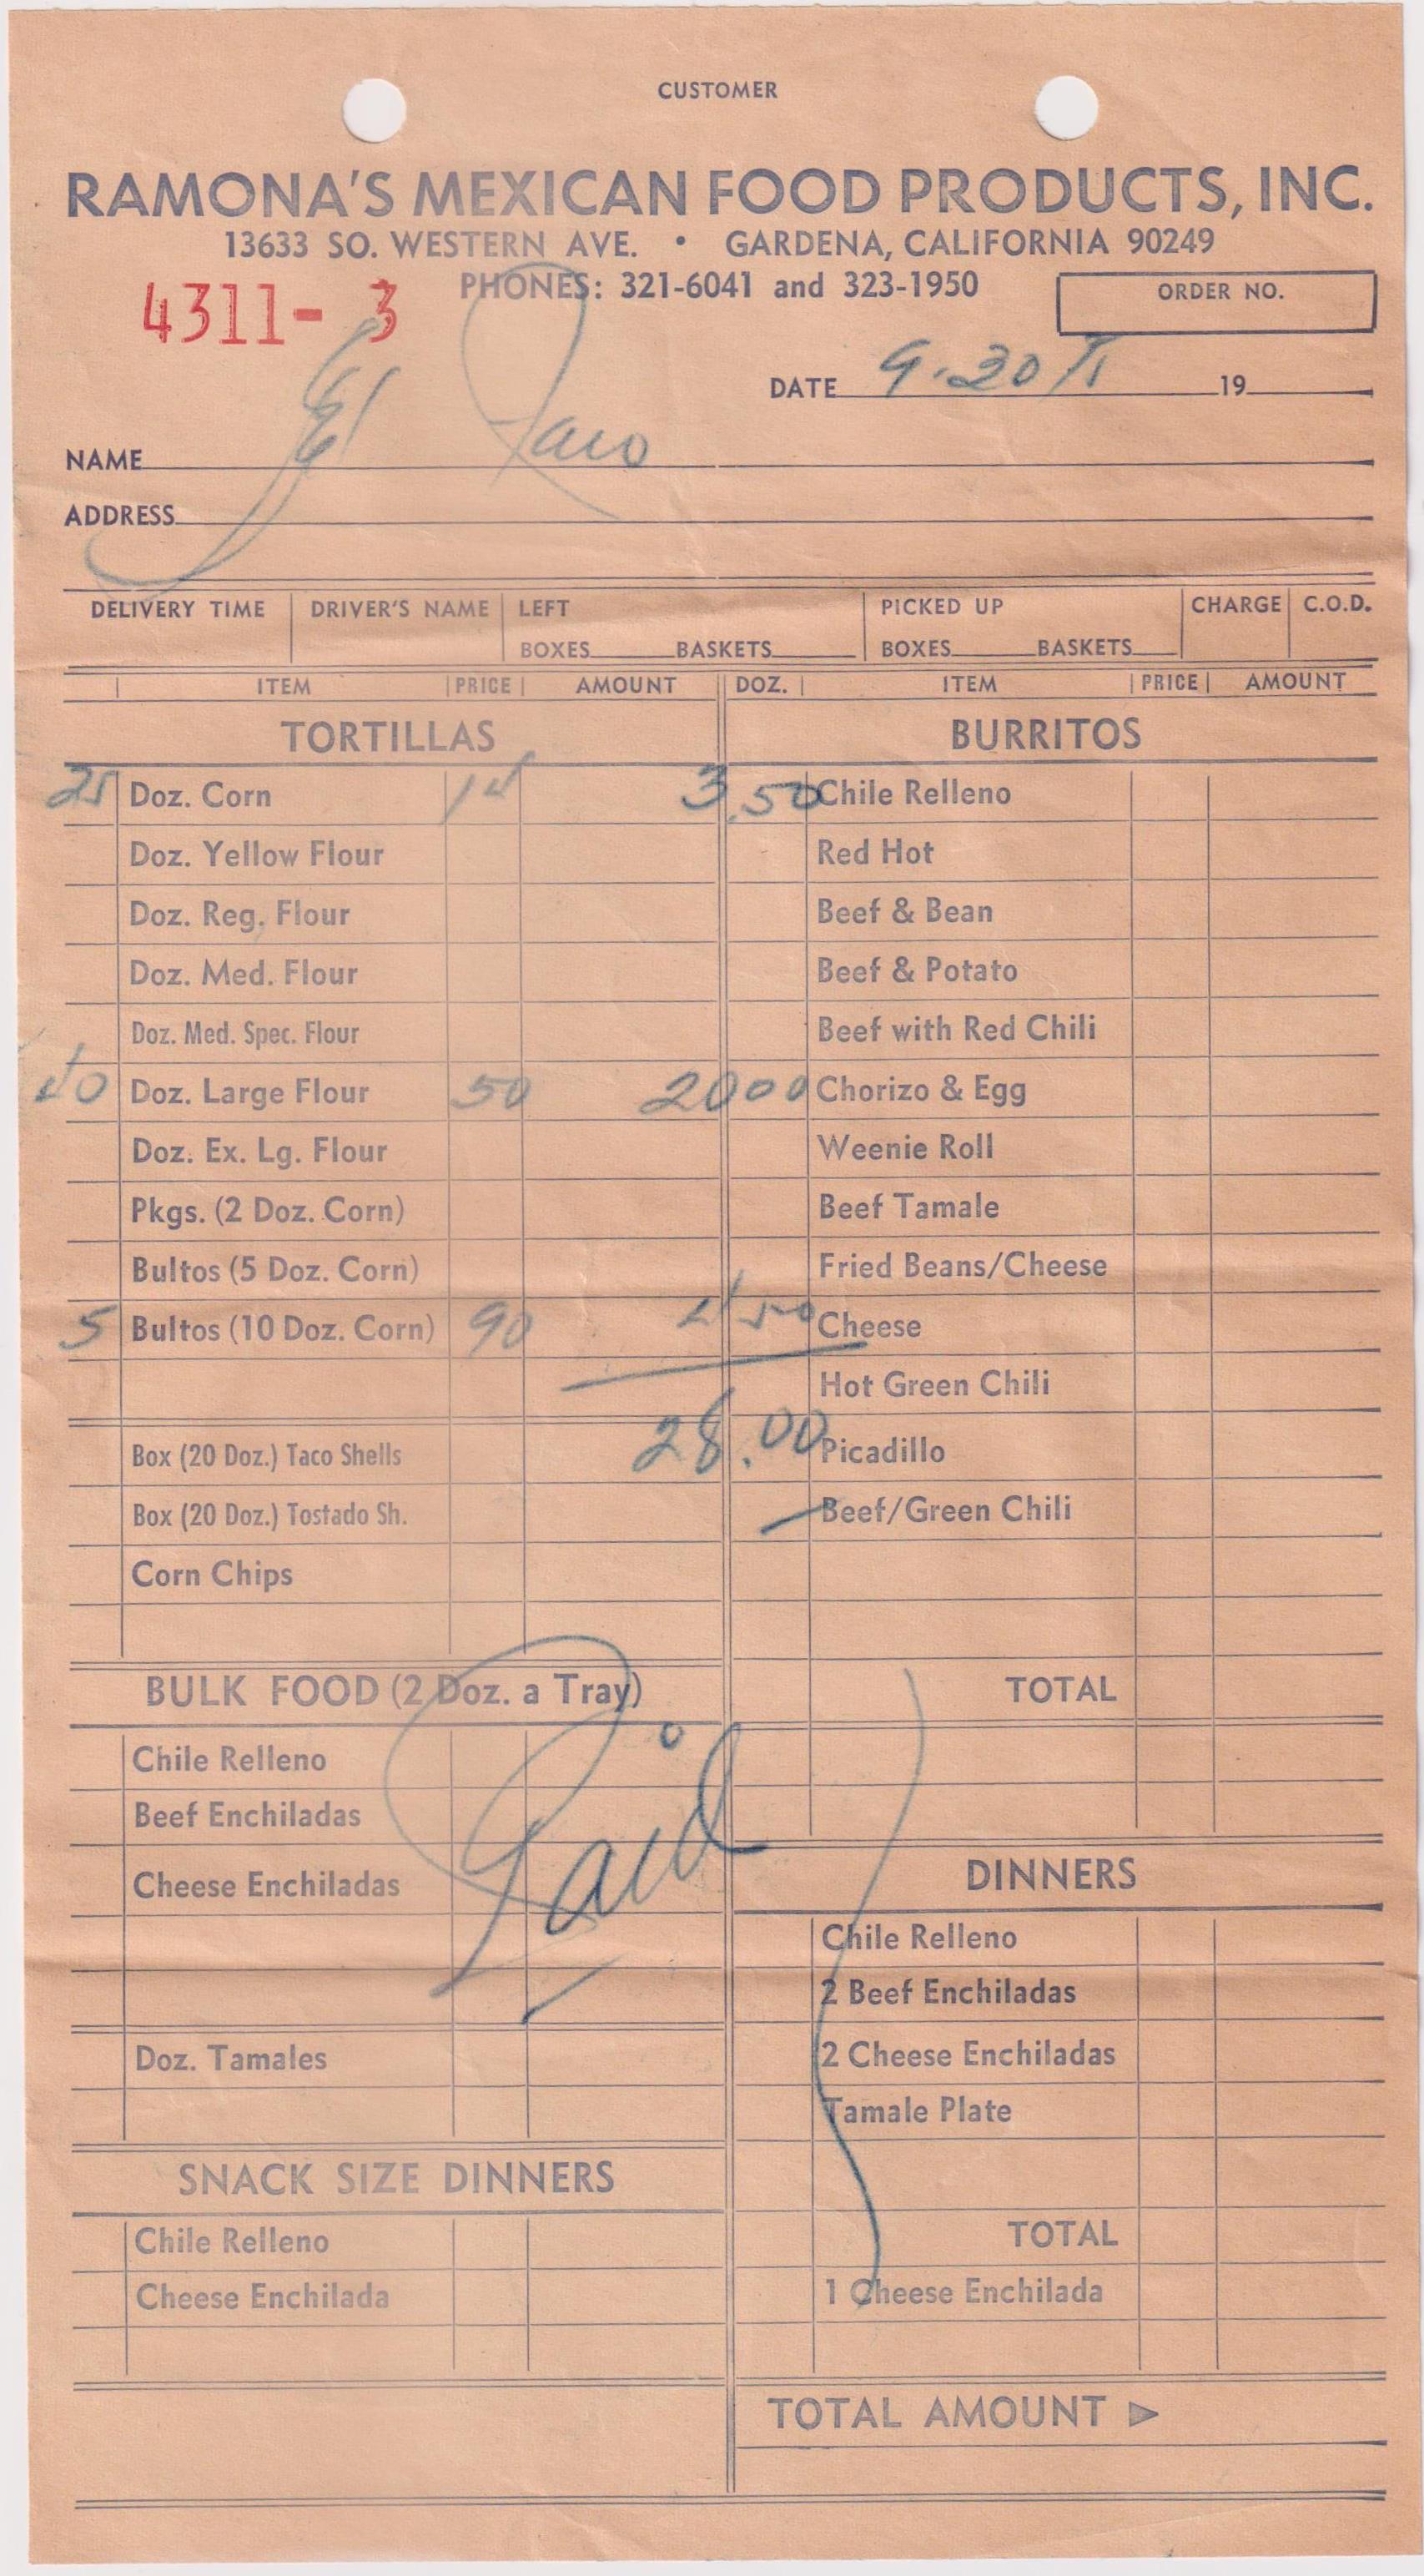 CUSTOMER
RAMONA'S MEXICAN FOOD PRODUCTS, INC.
13633 SO. WESTERN AVE. • GARDENA, CALIFORNIA 90249
PHONES: 321-6041 and 323-1950
4311- 3
ORDER NO.
DATE 9.20 19
NAME El Paso
ADDRESS
DELIVERY TIME DRIVER'S NAME LEFT BOXES BASKETS PICKED UP BOXES BASKETS CHARGE C.O.D.
ITEM PRICE AMOUNT DOZ. ITEM PRICE AMOUNT
TORTILLAS
25 Doz. Corn 14 3.50
Doz. Yellow Flour
Doz. Reg. Flour
Doz. Med. Flour
Doz. Med. Spec. Flour
40 Doz. Large Flour 50 2000
Doz. Ex. Lg. Flour
Pkgs. (2 Doz. Corn)
Bultos (5 Doz. Corn)
5 Bultos (10 Doz. Corn) 90 450
28.00
Box (20 Doz.) Taco Shells
Box (20 Doz.) Tostado Sh.
Corn Chips
BULK FOOD (2 Doz. a Tray)
Chile Relleno
Beef Enchiladas
Cheese Enchiladas
Paid
Doz. Tamales
SNACK SIZE DINNERS
Chile Relleno
Cheese Enchilada
BURRITOS
Chile Relleno
Red Hot
Beef & Bean
Beef & Potato
Beef with Red Chili
Chorizo & Egg
Weenie Roll
Beef Tamale
Fried Beans/Cheese
Cheese
Hot Green Chili
Picadillo
Beef/Green Chili
TOTAL
DINNERS
Chile Relleno
2 Beef Enchiladas
2 Cheese Enchiladas
Tamale Plate
TOTAL
1 Cheese Enchilada
TOTAL AMOUNT ▷